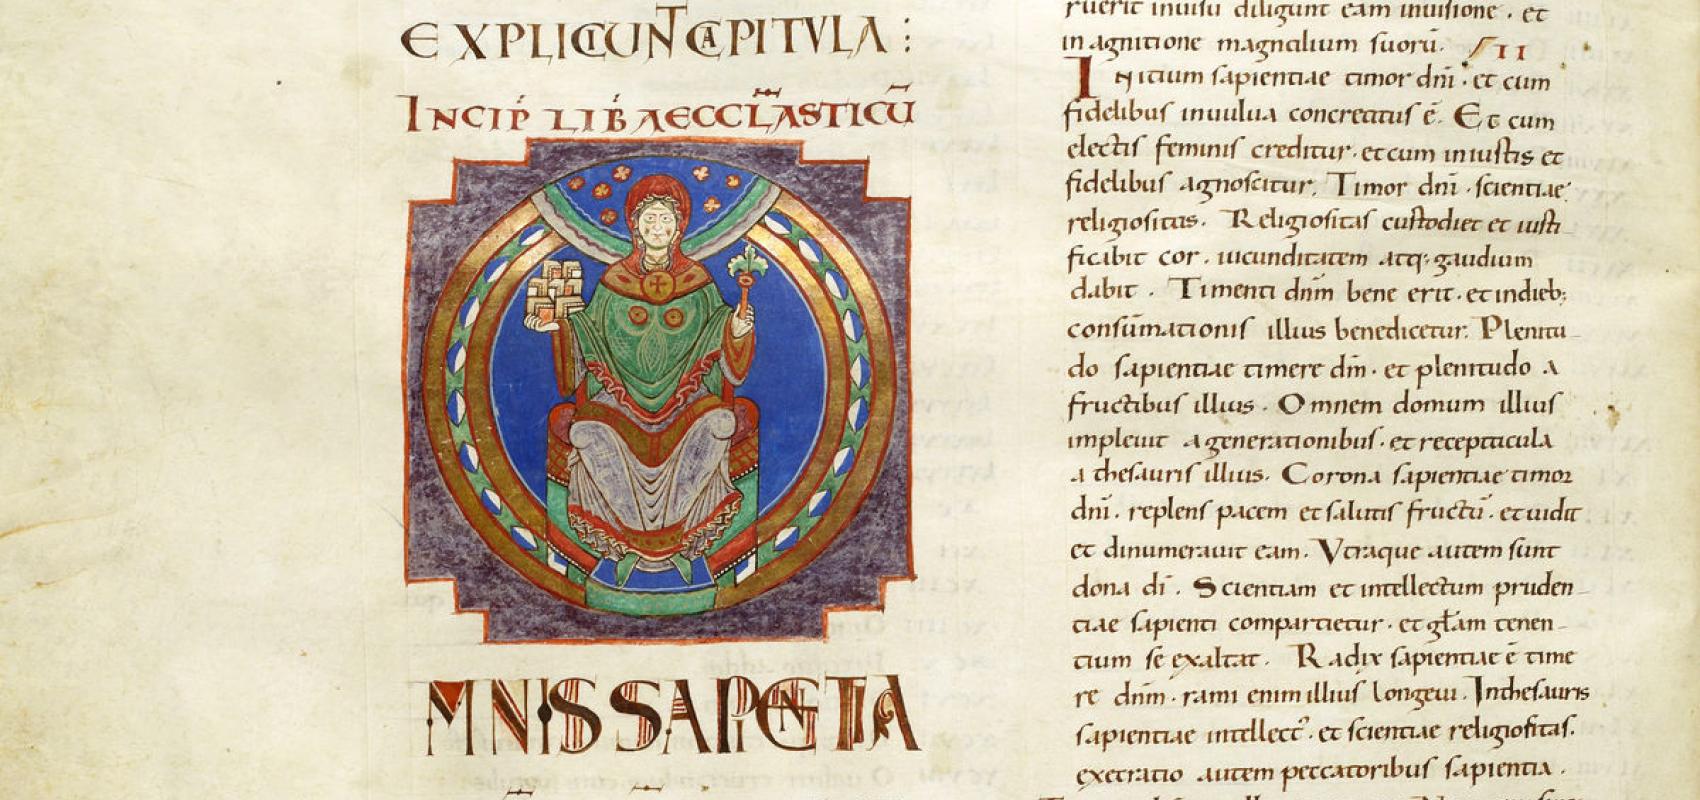 EXPLICIUNT CAPITVLA :
INCIP LIB AECCLASTICŪ
MNIS SAPIENTIA
ruerit inuisu diligunt eam inuisione · et
in agnitione magnalium suorū. VII
INitium sapientiae timor dn̄i · et cum
fidelibus inuulua concreatus ē. Et cum
electis feminis creditur · et cum iniustis et
fidelibus agnoscitur. Timor dn̄i · scientiae
religiositas. Religiositas custodiet et iusti
ficabit cor. iucunditatem atq; gaudium
dabit. Timenti dn̄m bene erit · et indieb;
consūmationis illius benedicetur. Plenitu
do sapientiae timere dm̄ · et plenitudo a
fructibus illius. Omnem domum illius
impleuit a generationibus · et receptacula
a thesauris illius. Corona sapientiae timor
dn̄i · replens pacem et salutis fructū · et uidit
et dinumerauit eam. Vtraque autem sunt
dona dī. Scientiam et intellectum pruden
tiae sapienti compartietur · et gl̄am tenen
tium se exaltat. Radix sapientiae ē time
re dn̄m · rami enim illius longeui. Inthesauris
sapientiae intellect; · et scientiae religiositas.
execratio autem peccatoribus sapientia.